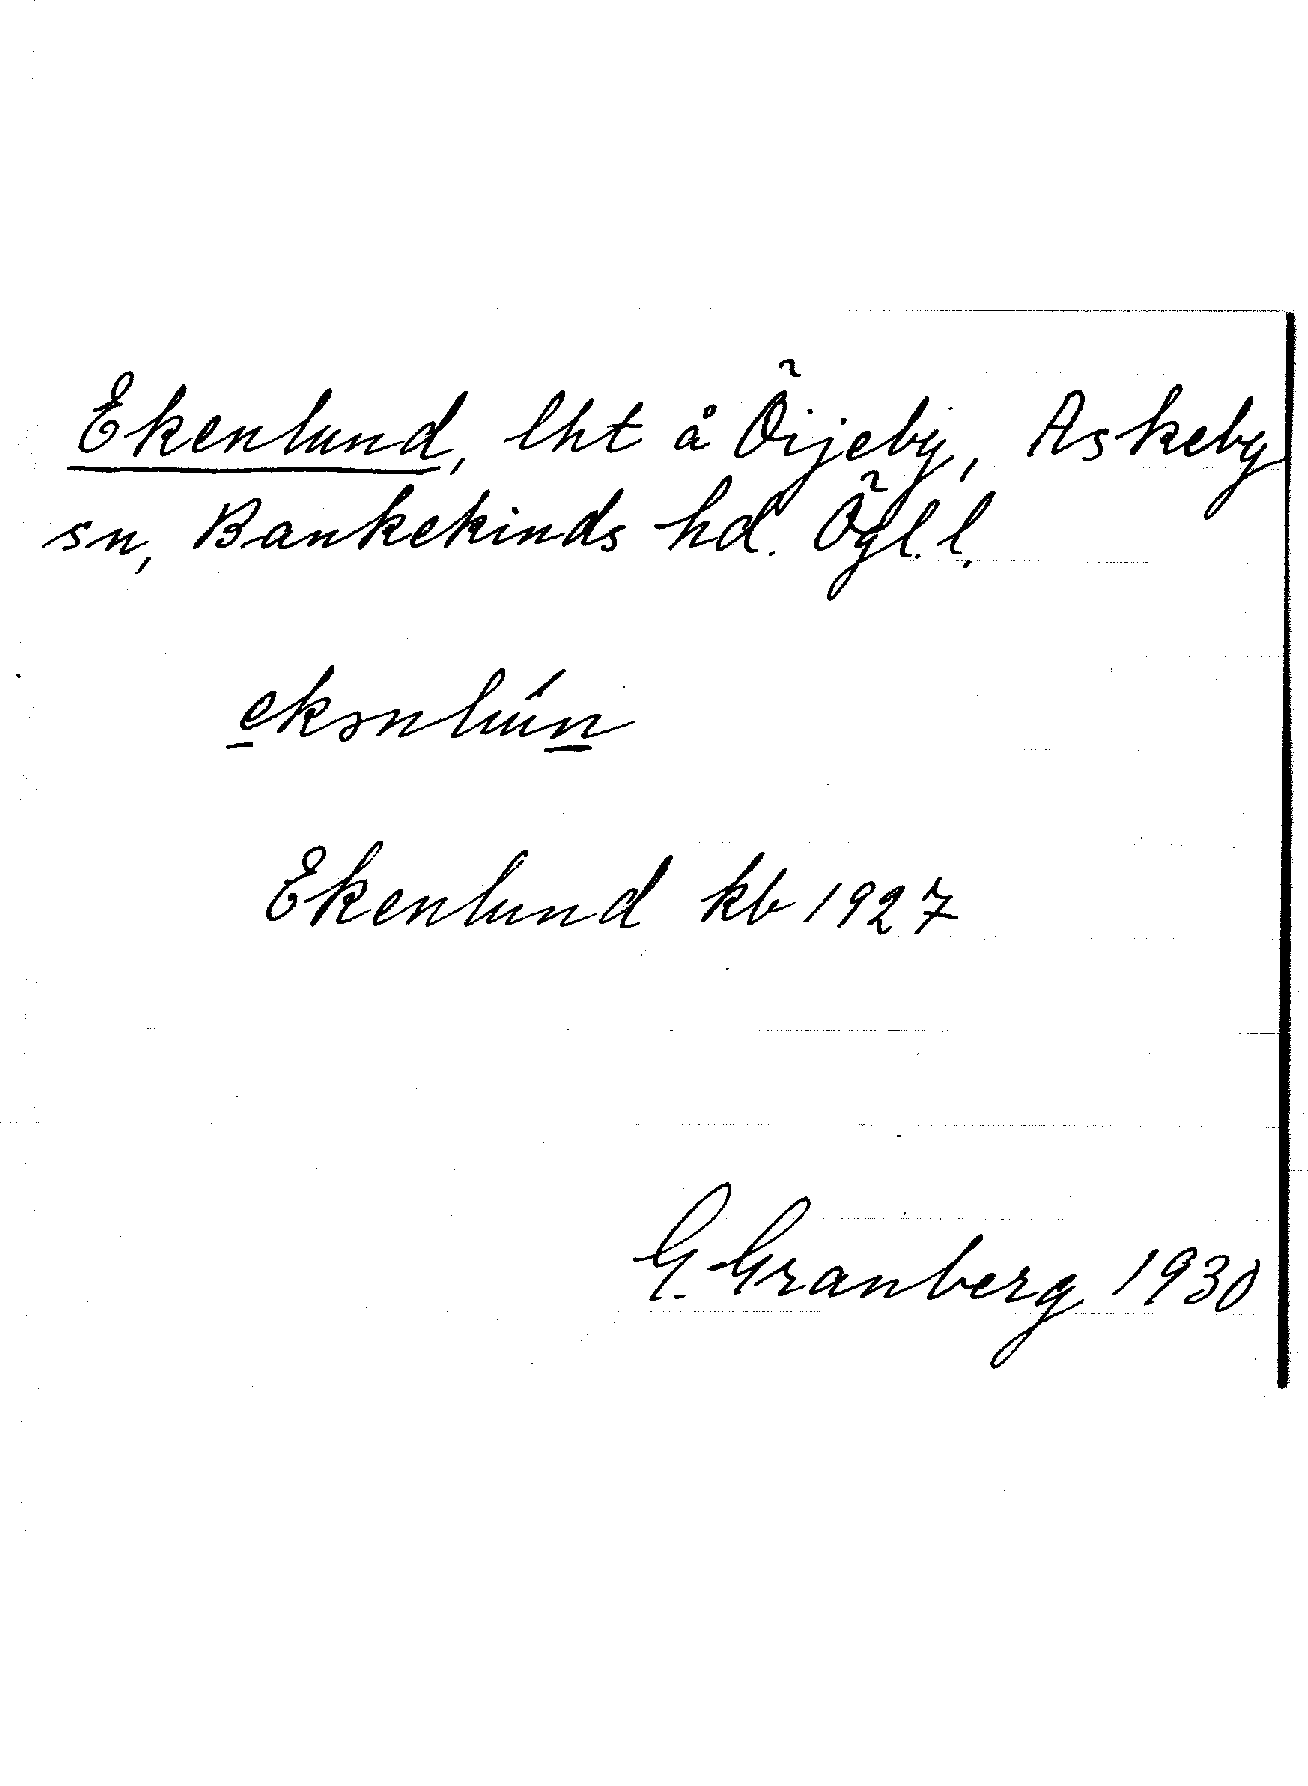 Ekenlund, lht å Öijeby, Askeby
sn, Bankekinds hd. Ögl. l.
ekənlún
Ekenlund kb 1927
G. Granberg 1930